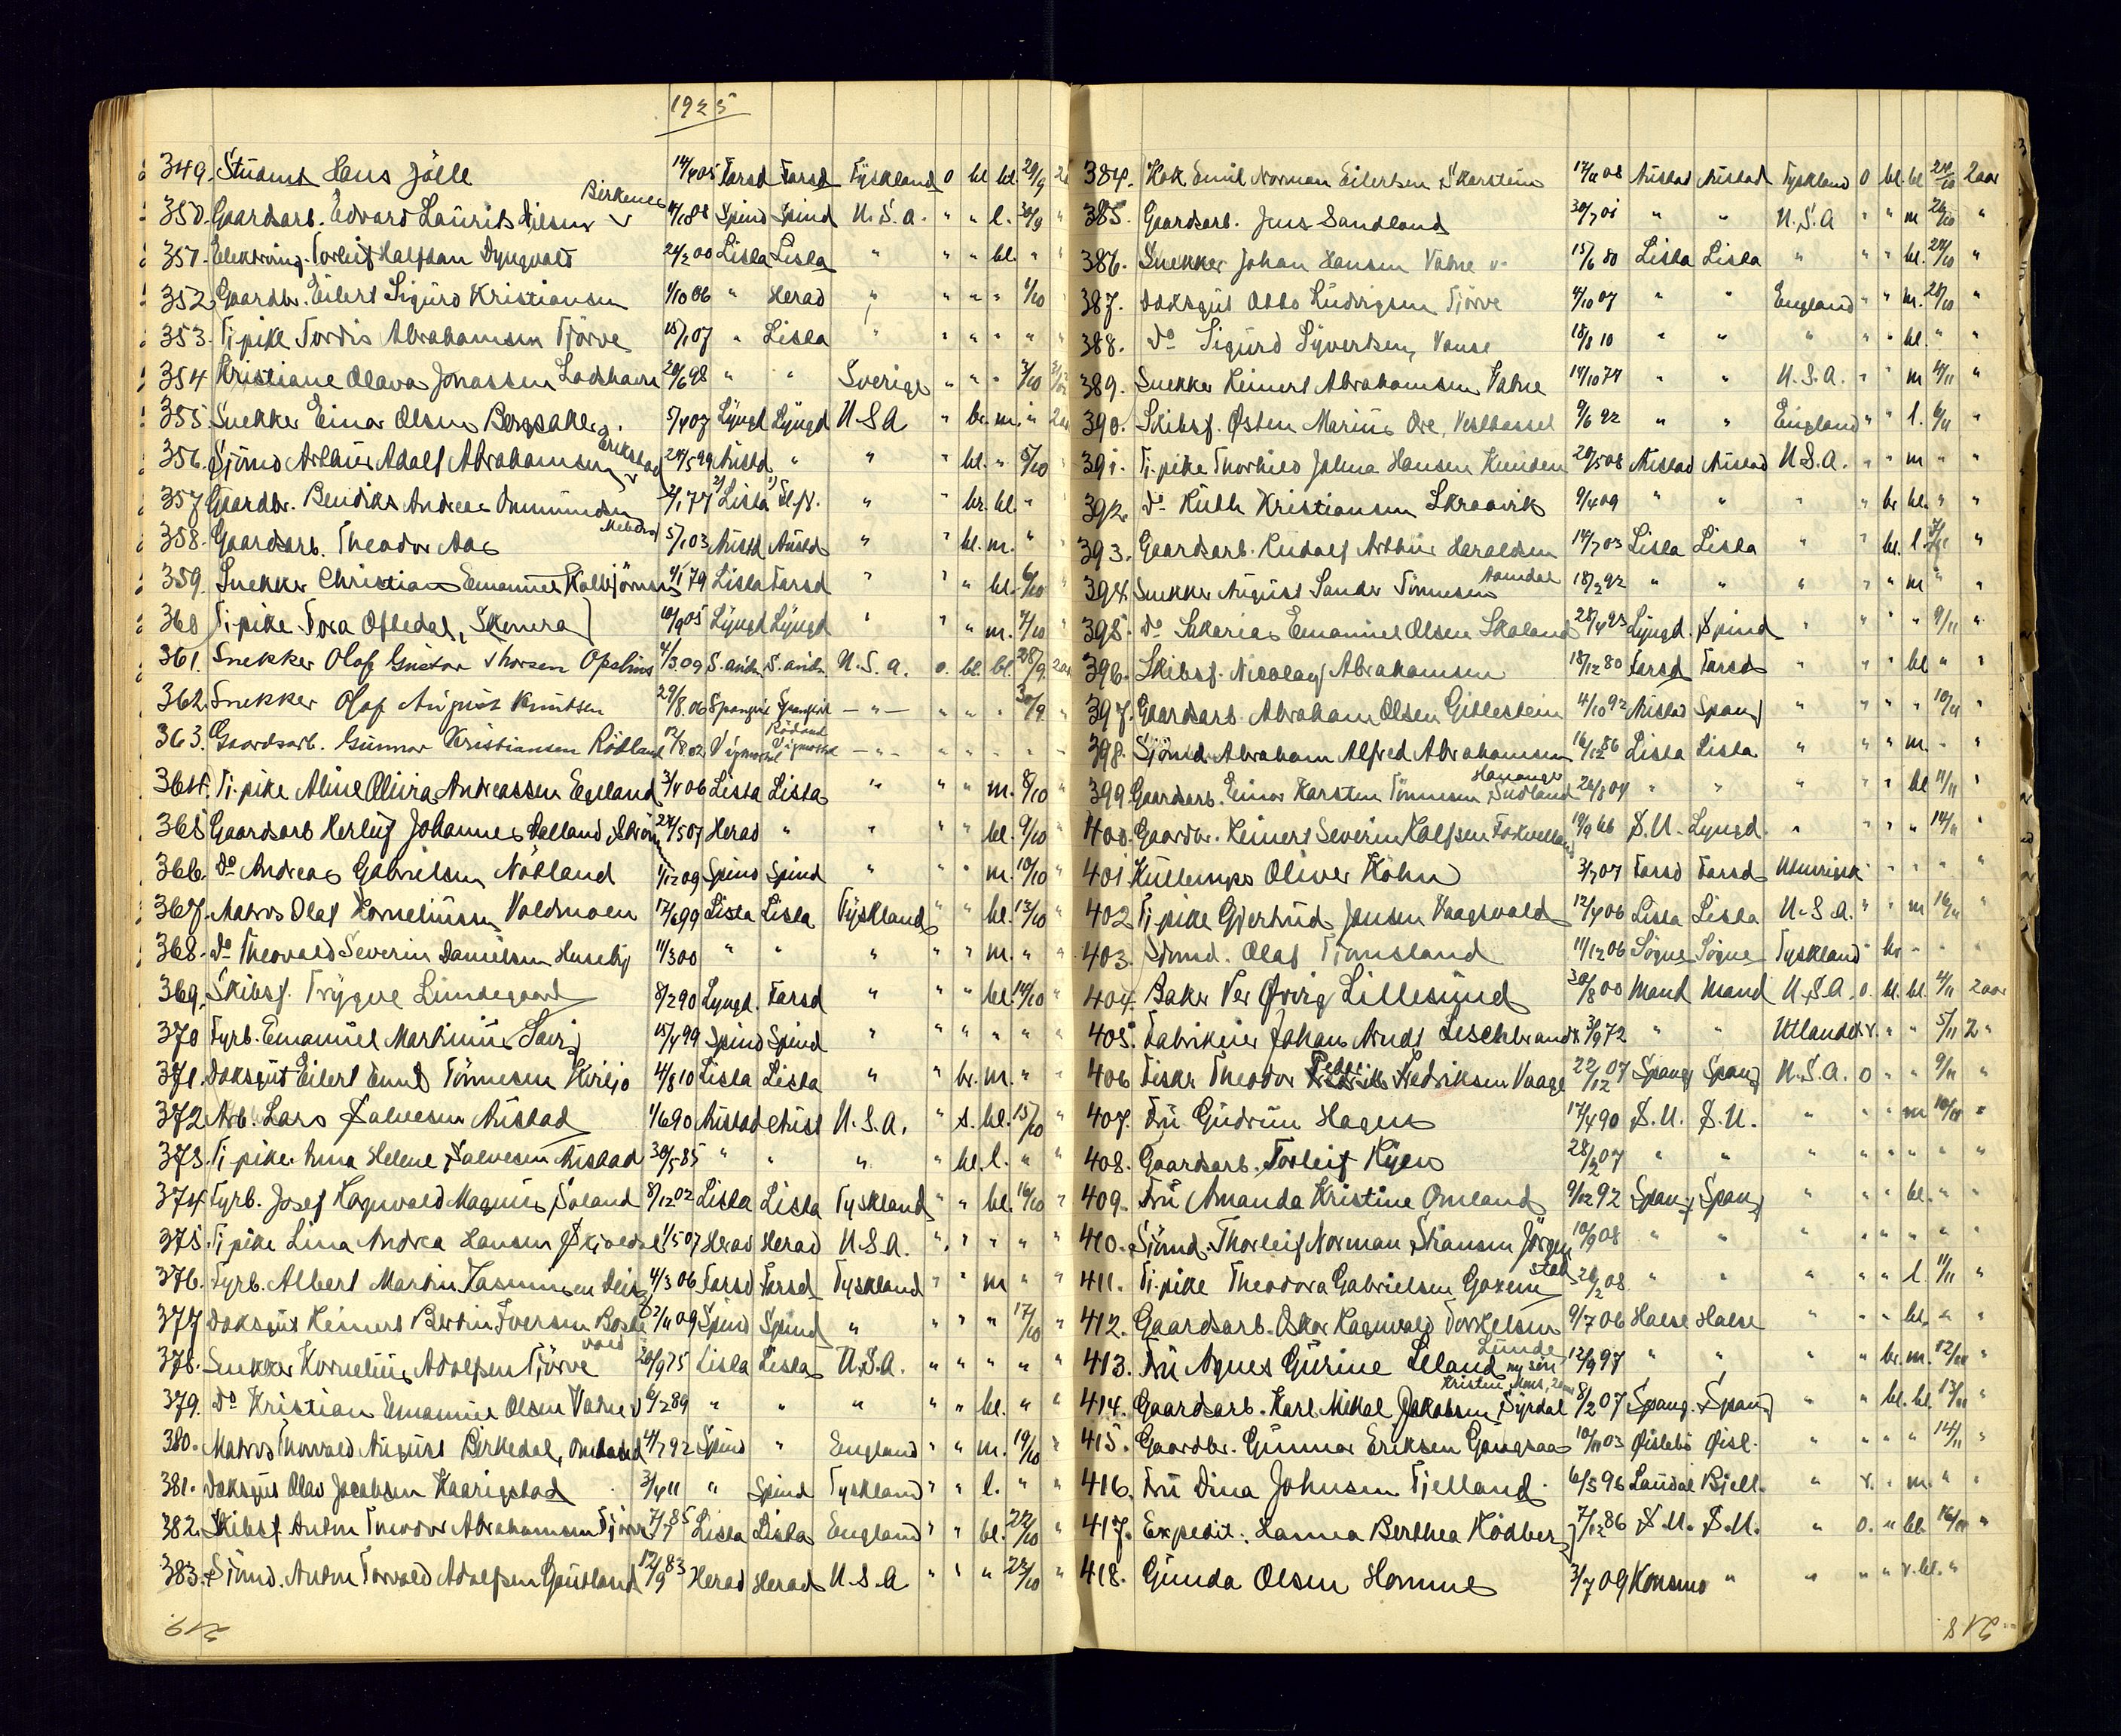 1925
349. Student Hans Jölle 14/4 05 Farsd Farsd Tyskland o bl bl. 29/9
Birkenes
350. Gaardsarb. Edvard Laurits Nilsen v 4/1 88 Spind Spind U.S.a. " " l. 30/9 "
351. Torleif Halfdan Dyngvold 24/2 00 Lista Lista " " " bl. " "
352. Gaardbr. Eilert Sigurd Kristiansen 1/10 06 " Herad " " " " 1/10
353. Tj.pike Tordis Abrahamsen Tjörve 15/1 07 " Lista " " " " " "
354 Kristiane Olava Jonassen Ladshavn 20/6 98 " " Sverige " " " 3/10
355 Snekker Einar Olsen Bergsaker. 5/4 07 Lyngd Lyngd U.S.A " br. m. " 2aar
356. Sjömd Arthur Adolf Abrahamsen Erikstad 24/5 99 Austd " " " bl. " 5/10
357 Gaardbr. Bendiks Andreas Ommundsen 2/1 77 Lista " br. bl. "
358. Gaardsarb. Theodor Aas 5/1 03 Austd Austd " " bl. m. "
359. Snekker Christian Emanuel Kolbjörnsen 4/1 79 Lista Farsd " " " bl. 6/10 "
360 Tj.pike Tora Oftedal, Skeiura 10/9 05 Lyngd Lyngd " " " m. 7/10 "
361. Snekker Olaf Gustav Thorsen Opsahl 4/3 09 S.aud. S.aud. U.S.a. o. bl. bl. 28/9 2aar
362. Snekker Olaf August Knutsen 29/8.06 Spangrd Spangrd — " — " " " 30/9 "
363. Gaardsarb. Gunnar Kristiansen Rödland 12/8 02 Vigmostad Rödland Vigmostad — " — " " " " "
364. Tj.pike Aline Olivia Andreassen Egeland 3/4 06 Lista Lista " " " m. 8/10 "
365 Gaardsarb Herleif Johannes Dalland, 24/5 07 Herad " " " " bl. 9/10 "
366. Do Andreas Gabrielsen Nötland 1/12 09 Spind Spind " " " m. 10/10 "
367. Matros Olaf Korneliussen Voldmoen 17/6 99 Lista Lista Tyskland " " bl. 13/10 "
368. Do Theovald Severin Danielsen Huseby 11/3 00 " " " " " m. " "
369. Skibsf. Trygve Lundegaard 8/2 90 Lyngd. Farsd " " " bl. 14/10 "
370 Fyrb. Emanuel Martinius 15/4 99 Spind Spind " " " " " "
371. Doksgut Eilert Emil Tönnesen Kviljo 4/8 10 Lista Lista " " br. m. " "
372 Arb. Lars Salvesen Austad 1/6 90 Austad Aust U.S.A. " s. bl. 15/10 "
373. Tj.pike Anna Helene Salvesen Austad 30/5 85 " " " " bl. l. " "
374 Fyrb. Josef Ragnvald Magnus Saland 8/12 02 Lista Lista Tyskland " " bl. 16/10 "
375. Tj.pike Lina Andrea Hansen Skjoldal 1/5 07 Herad Herad U.S.A. " " " " "
376. Fyrb. Albert Martin Rasmussen 4/3 06 Farsd Farsd Tyskland " " m " "
377 Doksgut Reinert Bertin Iversen Boskevold 2/11 09 Spind Spind " " " " 17/10 "
378. Snekker Kornelius Adolfsen Tjörve 20/9 75 Lista Lista U.S.A. " " " " "
379. Do Kristian Emanuel Olsen Vatne v 6/2 89 " " " " " bl. " "
380. Matros Thorvald August Birkedal, Omland 4/7 92 Spind " England " " m. 19/10 "
381. Doksgut Olav Jacobsen Kaarigstad 3/4 11 " Spind Tyskland " " l. " "
382. Skibsf. Anton Theodor Abrahamsen Tjörve 7/7 85 Lista Lista England " " bl. 22/10 "
383. Sjömd. Anton Torvald Adolfsen Gautland 12/9 83 Herad Herad U.S.A " " " 23/10 "
219.
384. Kok Emil Norman Eilertsen Skarstein 17/11 08 Austad Austad Tyskland o bl. bl. 24/10 2aar
385. Gaardsarb. Jens Sandland 30/7 01 " " U.S.A " " m 26/10 "
386. Snekker Johan Hansen Vatne v. 15/6 80 Lista Lista " " " bl. 28/10 "
387. Doksgut Otto Ludvigsen Tjörve 4/10 07 " " England " " m. 28/10 "
388. Do Sigurd Syvertsen, Vanse 18/1 10 " " " " " bl. " "
389. Snekker Reinert Abrahamsen Vatne 14/10 74 " " U.S.A. " " m 4/11 "
390. Skibsf. Østen Marius Ore, Vesthassel 9/6 92 " " England " " l. 6/11 "
391. Tj.pike Thorhild Jalma Hansen Kvinden 20/5 08 Austad Austad U.S.A. " " m " "
392. Do Ruth Kristiansen Skraavik 9/4 09 " " " " br bl. " "
393. Gaardsarb. Rudolf Arthur Haraldsen 14/7 03 Lista Lista " " bl. l. 7/11 "
394. Snekker August Sander Tönnesen Aamdal 18/2 92 " " " " " m " "
395. Do Sakarias Emanuel Olsen Skoland 28/4 93 Lyngd. Spind " " " " 9/11 "
396. Skibsf. Nicolay Abrahamsen 18/12 80 Farsd Farsd " " " bl " "
397. Gaardsarb. Abraham Olsen Gitlestein 14/10 92 Austad Spang " " " " 10/11 "
398. Sjömd. Abraham Alfred Abrahamsen 16/12 86 Lista Lista " " " m. " "
399. Gaardsarb. Einar Karsten Tönnesen, Sudland Hananger 26/8 04 " " " " " bl 11/11 "
400. Gaardbr. Reinert Severin Rolfsen 19/9 66 S.U. Lyngd. " " " " 14/11 "
401 Kullemps Oliver Köhn 3/7 07 Farsd Farsd Utenriks " " " " "
402 Tj.pike Gjertrud Jensen Vaagsvold 12/4 06 Lista Lista U.S.A. " " m 16/11 "
403. Sjömd. Olaf Tjomsland 11/12 06 Sögne Sögne Tyskland " br " " "
404. Baker Per Øvrig Lillesund 30/8 00 Mand Mand U.S.A. o. bl. bl. 4/11 2aar
405. Fabrikeier Johan Arndt Leschbrandt 3/9 72 " " Utlandet r. " " 5/11 2 "
406 Fisker Theodor Peder Fredriksen Vaage 22/12 07 Spang Spang U.S.A. o " " 9/11 "
407. Fru Gudrun Hagen 17/4 90 S.U. S.U. " " " m 10/11 "
408. Gaardsarb. Torleif Kyen 28/2 07 " " " " " " " "
409. Fru Amanda Kristine Omland 9/12 92 Spang Spang " " " bl. " "
410. Sjömd. Thorleif Norman Stiansen Jörgenstad 10/9 08 " " " " " " " "
411. Tj.pike Theodora Gabrielsen Gaxem 20/2 08 " " " " " l. 11/11 "
412. Gaardsarb. Oskar Ragnvald Torkelsen 9/7 06 Halse Halse " " " bl. " "
413. Fru Agnes Gurine Leland Lunde 12/9 97 " " " " br. m. 12/11 "
414. Gaardsarb. Karl Mikal Jakobsen, Syrdal 8/2 07 Spang. Spang " " bl. bl. 13/11 "
415. Gaardbr. Gunnar Eriksen Gangsaas 10/11 03 Øislebø Øisl. " " " " 14/11 "
416. Fru Dina Johnsen Fjelland. 6/5 96 Laudal Bjell. " r. " m. " "
417. Expedit. Lanna Berthea Rödberg 7/12 86 S.U. S.U. " o. " bl. 16/11 "
418. Gunda Olsen Homme 3/7 09 Konsmo " " " " r.bl. "
218.